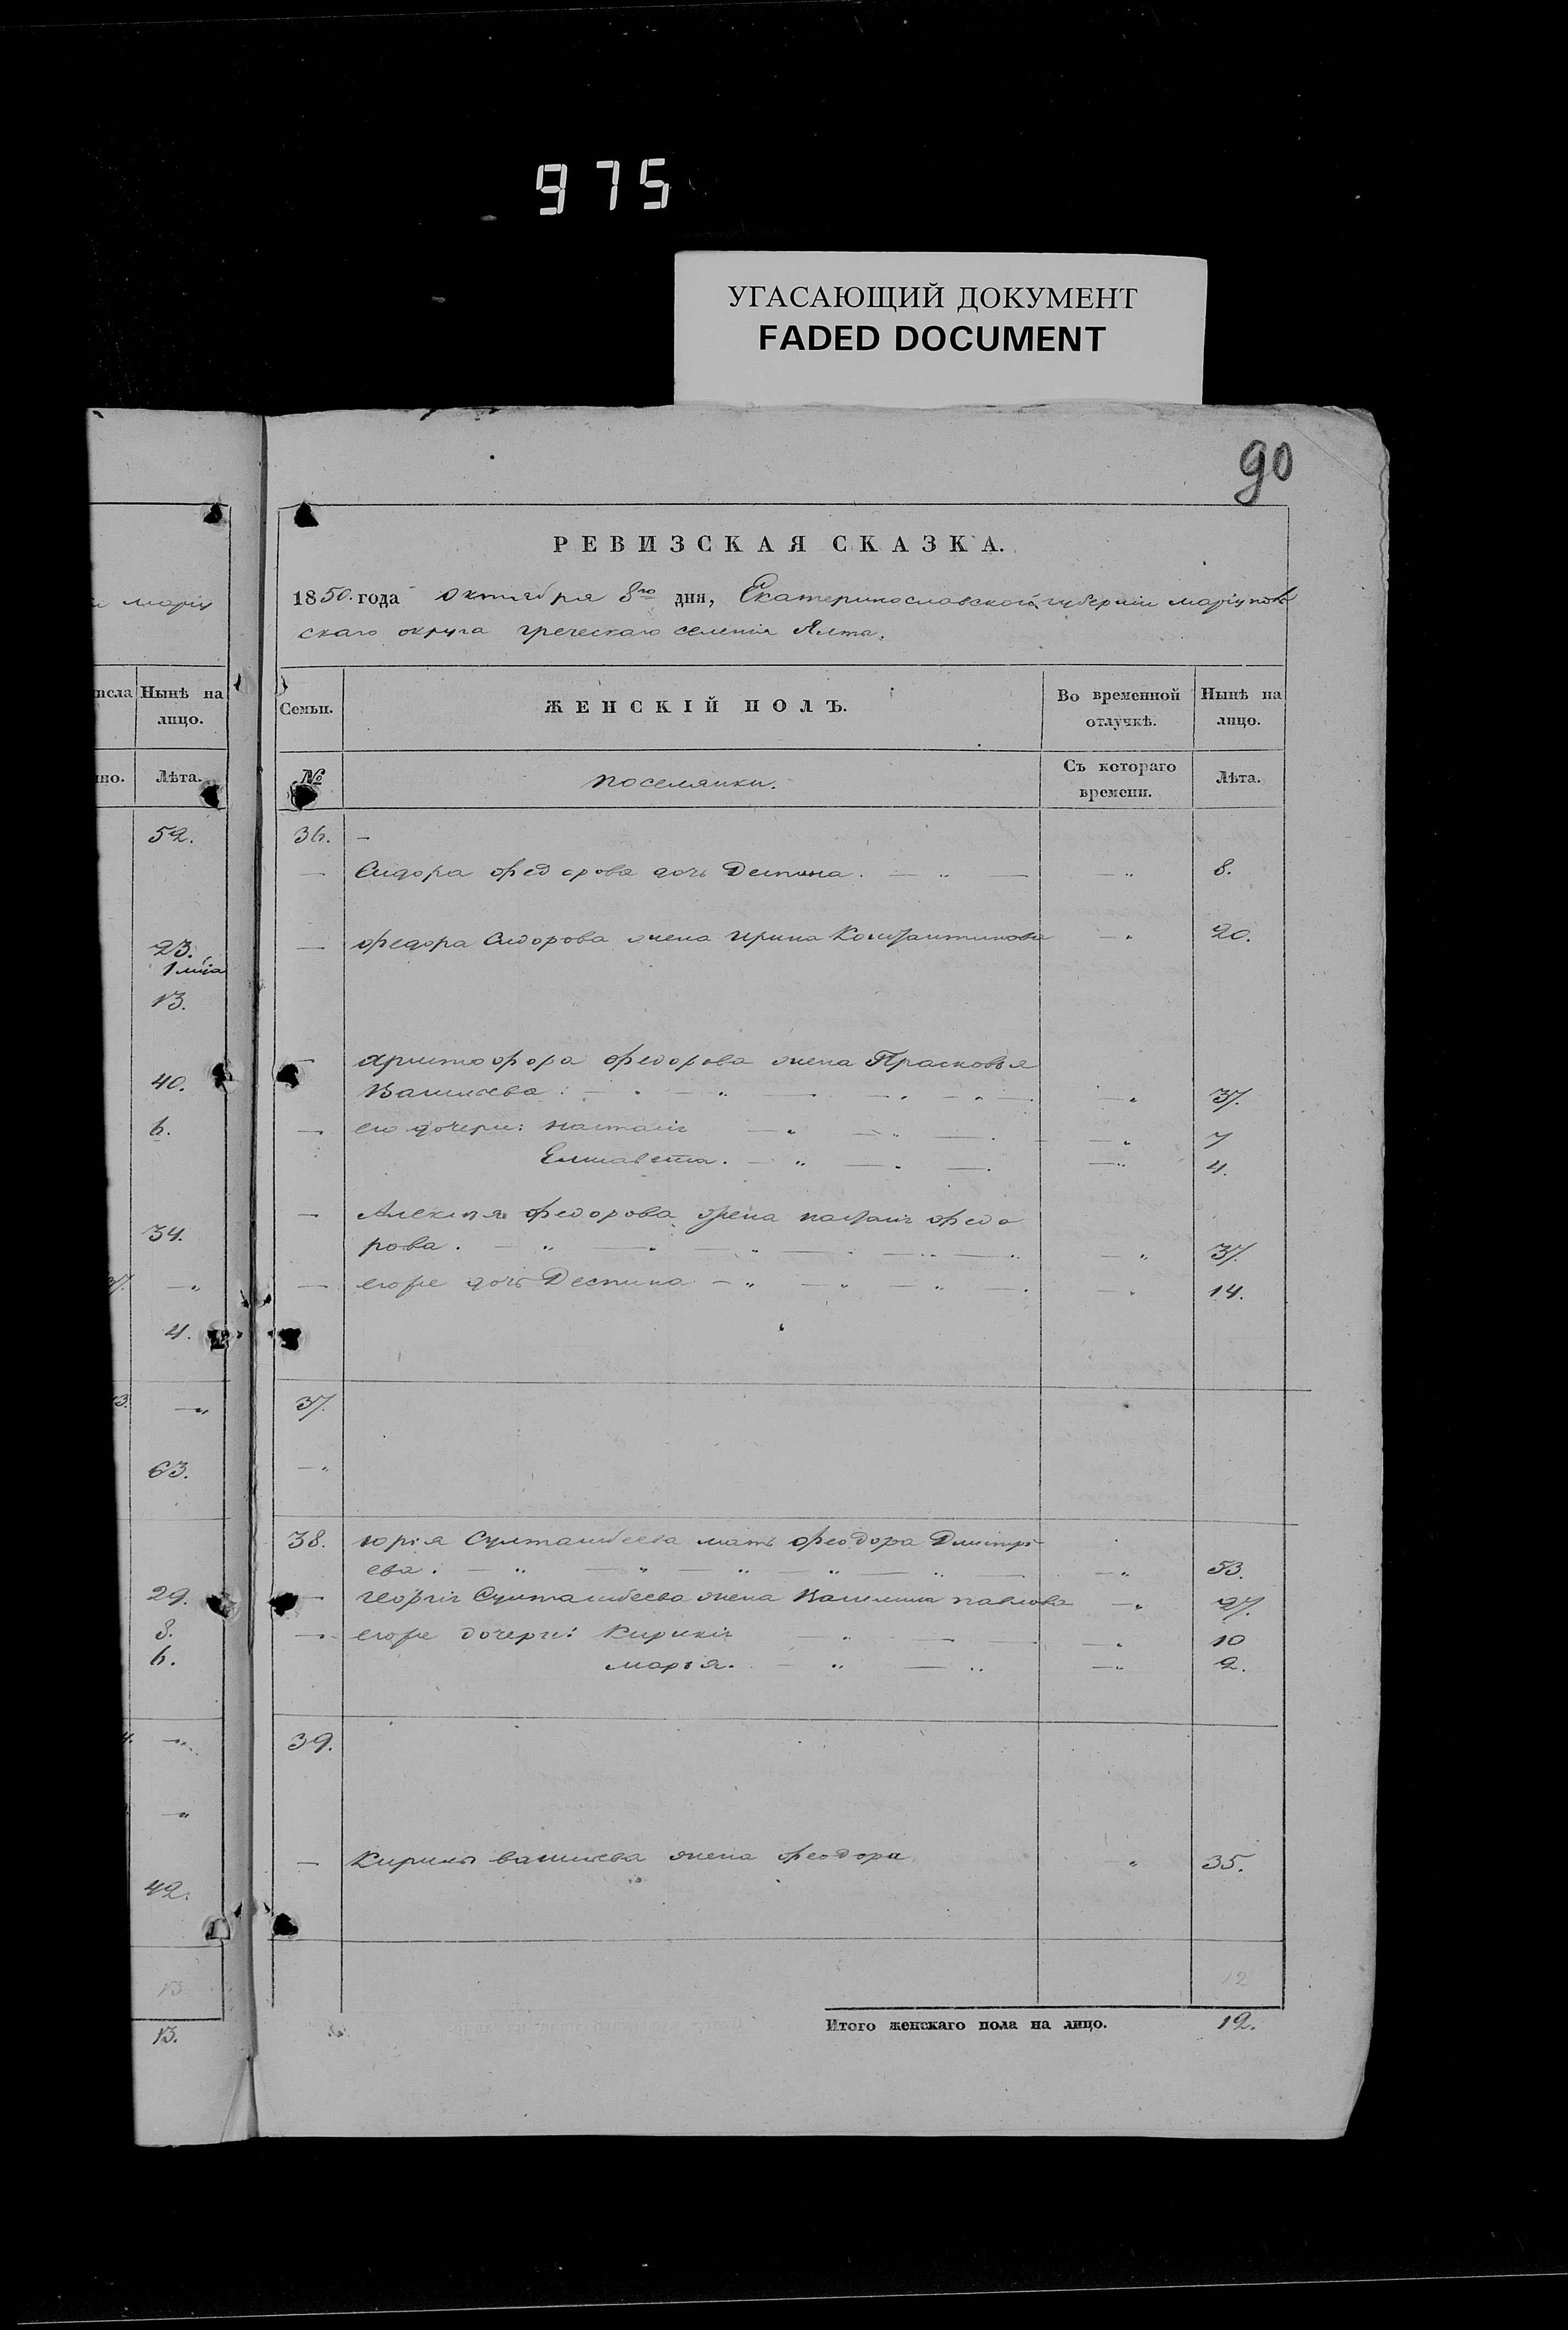 975
УГАСАЮЩИЙ ДОКУМЕНТ
FADED DOCUMENT
90
РЕВИЗСКАЯ СКАЗКА.
1850. года октября 8го дня, Екатеринославской губерніи маріуполь
скаго округа греческаго селенія Ялта.
маріу
Нынѣ на лицо.
Лѣта.
52.
23.
13.
40.
6.
34.
4.
63.
29.
8.
6.
42.
13
13.
Семьи. ЖЕНСКІЙ ПОЛЪ. Во временной отлучкѣ. Нынѣ на лицо.
№ поселянки. Съ котораго времени. Лѣта.
36. —
Сидора федорова дочь Деспина. 8.
федора Сидорова жена Ирина Константинова 20.
Христофора федорова жена Прасковья
Васильева. 37.
его дочери: настасія 7
Елисавета. 4.
Алексея федорова жена настасія федо
рова. 37.
егоже дочь Деспина 14.
37.
38. юрія Султанбеева мать феодора Дмитрі
ева. 53.
георгія Султанбеева жена Василиса павлова 27.
егоже дочери: Кирикія 10
марія. 2.
39.
Кирила васильева жена феодора 35.
12
Итого женскаго пола на лицо. 12.